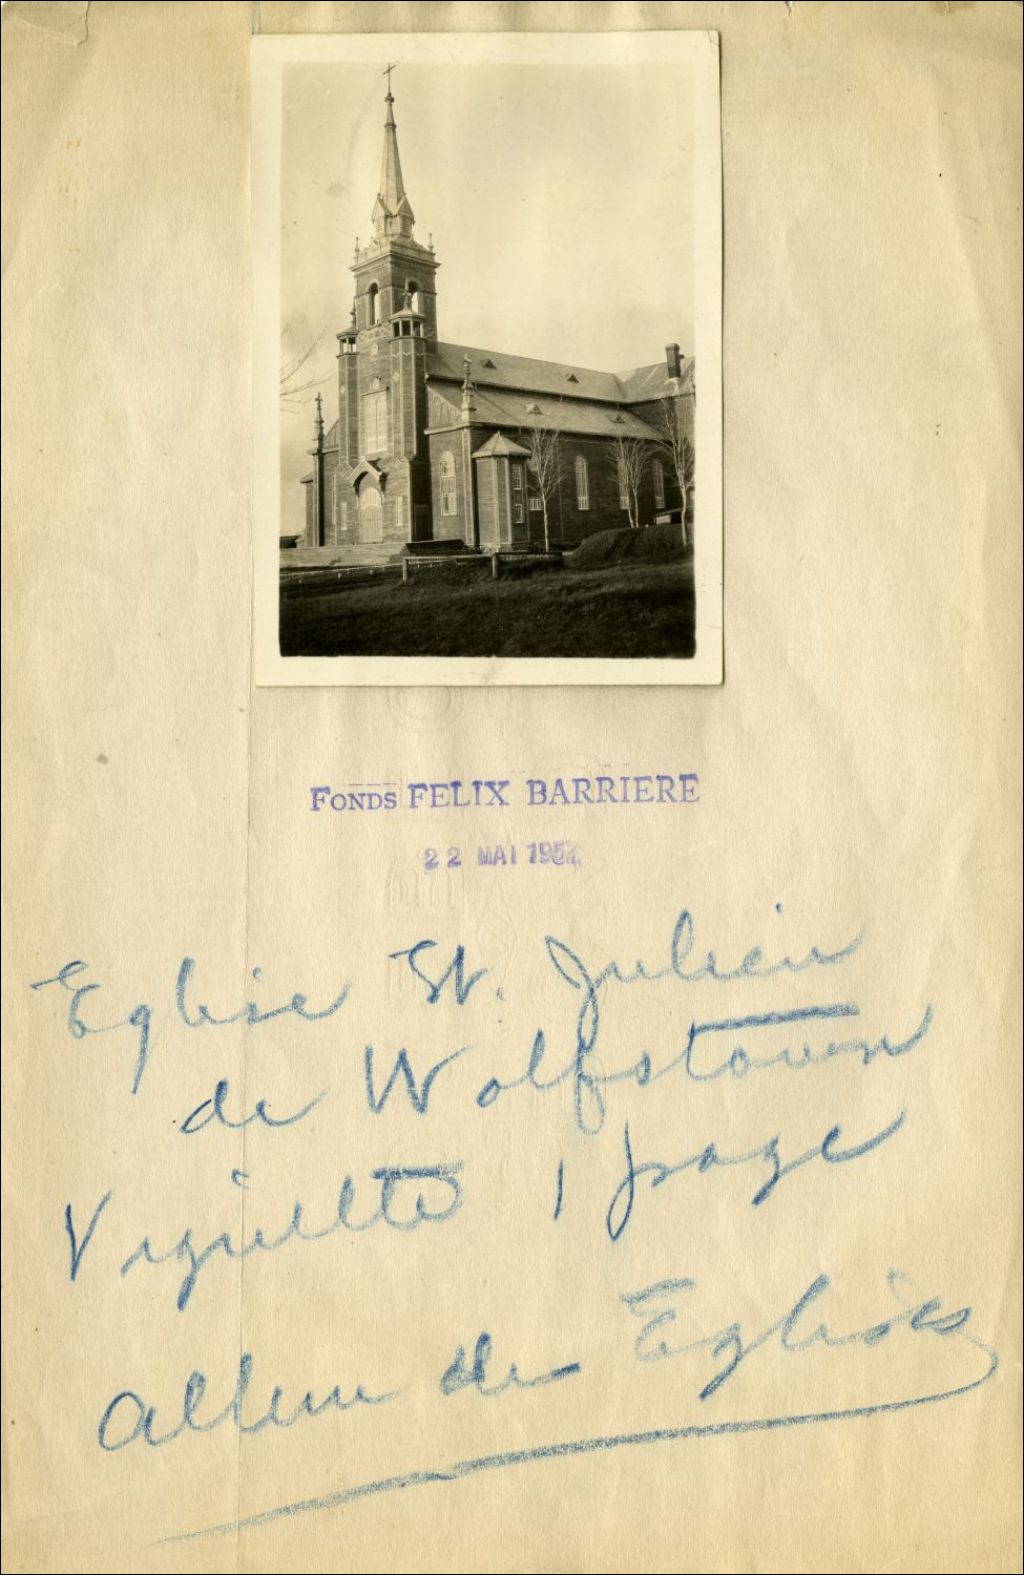 FONDS FELIX BARRIERE
22 MAI 195
Eglise St. Julien
de Wolfstown
Vignette 1 page
Album des Eglises